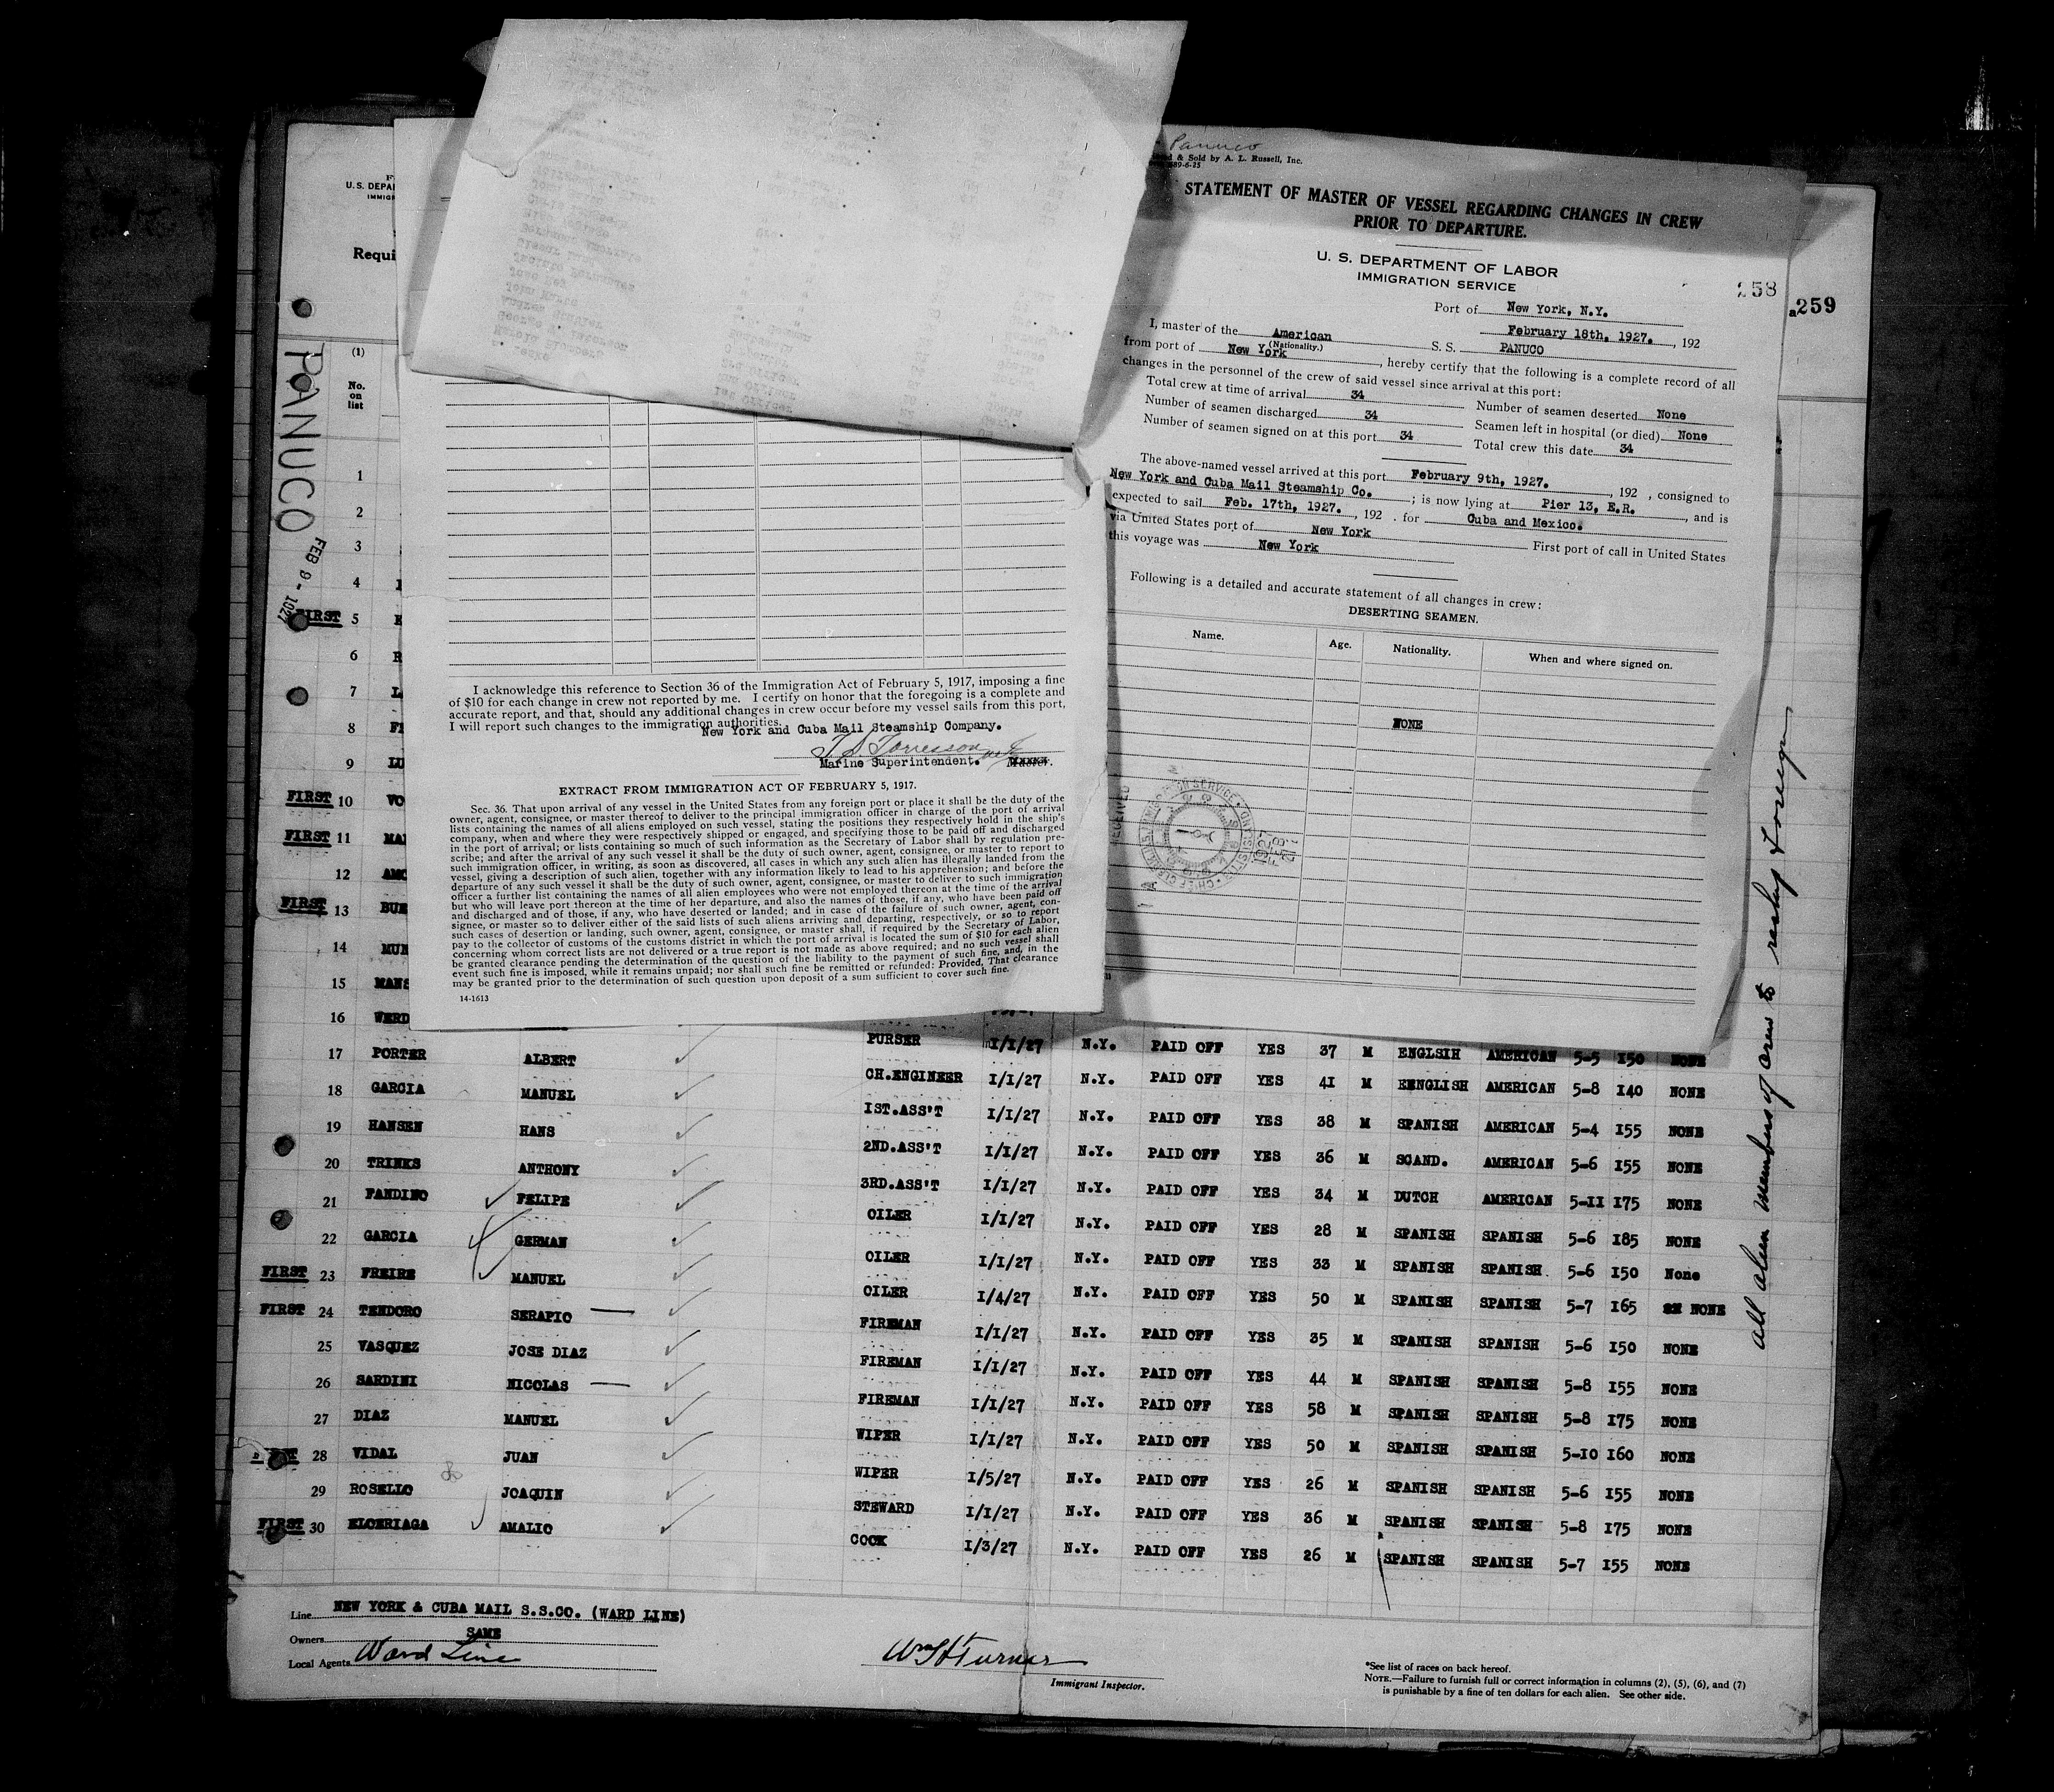 F
U.S. DEPA
IMMIG
Requi
(1)
No.
on
list
PANUCO
FEB 9 - 1927
1
2
3
4
FIRST 5
6
7
8
9
FIRST 10 VO
FIRST 11 MA
12 AMO
FIRST 13
14 MUN
15 MANS
16 WERD
I acknowledge this reference to Section 36 of the Immigration Act of February 5, 1917, imposing a fine
of $10 for each change in crew not reported by me. I certify on honor that the foregoing is a complete and
accurate report, and that, should any additional changes in crew occur before my vessel sails from this port,
I will report such changes to the immigration authorities.
New York and Cuba Mail Steamship Company.
Marine Superintendent. Master.
EXTRACT FROM IMMIGRATION ACT OF FEBRUARY 5, 1917.
Sec. 36. That upon arrival of any vessel in the United States from any foreign port or place it shall be the duty of the
owner, agent, consignee, or master thereof to deliver to the principal immigration officer in charge of the port of arrival
lists containing the names of all aliens employed on such vessel, stating the positions they respectively hold in the ship's
company, when and where they were respectively shipped or engaged, and specifying those to be paid off and discharged
in the port of arrival; or lists containing so much of such information as the Secretary of Labor shall by regulation pre-
scribe; and after the arrival of any such vessel it shall be the duty of such owner, agent, consignee, or master to report to
such immigration officer, in writing, as soon as discovered, all cases in which any such alien has illegally landed from the
vessel, giving a description of such alien, together with any information likely to lead to his apprehension; and before the
departure of any such vessel it shall be the duty of such owner, agent, consignee, or master to deliver to such immigration
officer a further list containing the names of all alien employees who were not employed thereon at the time of the arrival
but who will leave port thereon at the time of her departure, and also the names of those, if any, who have been paid off
and discharged and of those, if any, who have deserted or landed; and in case of the failure of such owner, agent, con-
signee, or master so to deliver either of the said lists of such aliens arriving and departing, respectively, or so to report
such cases of desertion or landing, such owner, agent, consignee, or master shall, if required by the Secretary of Labor,
pay to the collector of customs of the customs district in which the port of arrival is located the sum of $10 for each alien
concerning whom correct lists are not delivered or a true report is not made as above required; and no such vessel shall
be granted clearance pending the determination of the question of the liability to the payment of such fine, and, in the
event such fine is imposed, while it remains unpaid; nor shall such fine be remitted or refunded: Provided, That clearance
may be granted prior to the determination of such question upon deposit of a sum sufficient to cover such fine.
14-1613
Panuco
& Sold by A. L. Russell, Inc.
STATEMENT OF MASTER OF VESSEL REGARDING CHANGES IN CREW
PRIOR TO DEPARTURE.
U. S. DEPARTMENT OF LABOR
IMMIGRATION SERVICE
258
259
Port of New York, N.Y.
February 18th, 1927., 192
I, master of the American S. S. PANUCO
(Nationality.)
from port of New York, hereby certify that the following is a complete record of all
changes in the personnel of the crew of said vessel since arrival at this port:
Total crew at time of arrival 34 Number of seamen deserted None
Number of seamen discharged 34 Seamen left in hospital (or died) None
Number of seamen signed on at this port 34 Total crew this date 34
The above-named vessel arrived at this port February 9th, 1927., 192 , consigned to
New York and Cuba Mail Steamship Co. ; is now lying at Pier 13, E.R., and is
expected to sail Feb. 17th, 1927., 192 . for Cuba and Mexico.
via United States port of New York First port of call in United States
this voyage was New York
Following is a detailed and accurate statement of all changes in crew:
DESERTING SEAMEN.
Name. Age. Nationality. When and where signed on.
NONE
RECEIVED
all alien members of crew to reship foreign
PURSER 1/1/27 N.Y. PAID OFF YES 37 M ENGLSIH AMERICAN 5-5 150 NONE
17 PORTER ALBERT
CH.ENGINEER 1/1/27 N.Y. PAID OFF YES 41 M EENGLISH AMERICAN 5-8 140 NONE
18 GARCIA MANUEL
1ST.ASS'T 1/1/27 N.Y. PAID OFF YES 38 M SPANISH AMERICAN 5-4 155 NONE
19 HANSEN HANS
2ND.ASS'T 1/1/27 N.Y. PAID OFF YES 36 M SCAND. AMERICAN 5-6 155 NONE
20 TRINKS ANTHONY
3RD.ASS'T 1/1/27 N.Y. PAID OFF YES 34 M DUTCH AMERICAN 5-11 175 NONE
21 FANDINO FELIPE
OILER 1/1/27 N.Y. PAID OFF YES 28 M SPANISH SPANISH 5-6 185 NONE
22 GARCIA GERMAN
OILER 1/1/27 N.Y. PAID OFF YES 33 M SPANISH SPANISH. 5-6 150 None
FIRST 23 FREIRE MANUEL
OILER 1/4/27 N.Y. PAID OFF YES 50 M SPANISH SPANISH 5-7 165 NONE
FIRST 24 TENDORO SERAPIO
FIREMAN 1/1/27 N.Y. PAID OFF YES 35 M SPANISH SPANISH 5-6 150 NONE
25 VASQUEZ JOSE DIAZ
FIREMAN 1/1/27 N.Y. PAID OFF YES 44 M SPANISH SPANISH 5-8 155 NONE
26 SARDINI NICOLAS
FIREMAN 1/1/27 N.Y. PAID OFF YES 58 M SPANISH SPANISH 5-8 175 NONE
27 DIAZ MANUEL
WIPER 1/1/27 N.Y. PAID OFF YES 50 M SPANISH SPANISH 5-10 160 NONE
28 VIDAL JUAN
WIPER 1/5/27 N.Y. PAID OFF YES 26 M SPANISH SPANISH 5-6 155 NONE
29 ROSELLO JOAQUIN
STEWARD 1/1/27 N.Y. PAID OFF YES 36 M SPANISH SPANISH 5-8 175 NONE
FIRST 30 ELCERIAGA AMALIO
COOK 1/3/27 N.Y. PAID OFF YES 26 M SPANISH SPANISH 5-7 155 NONE
Line NEW YORK & CUBA MAIL S.S.CO. (WARD LINE)
Owners SAME
Local Agents Ward Line
Wm H Turner
Immigrant Inspector.
*See list of races on back hereof.
NOTE.—Failure to furnish full or correct information in columns (2), (5), (6), and (7)
is punishable by a fine of ten dollars for each alien. See other side.